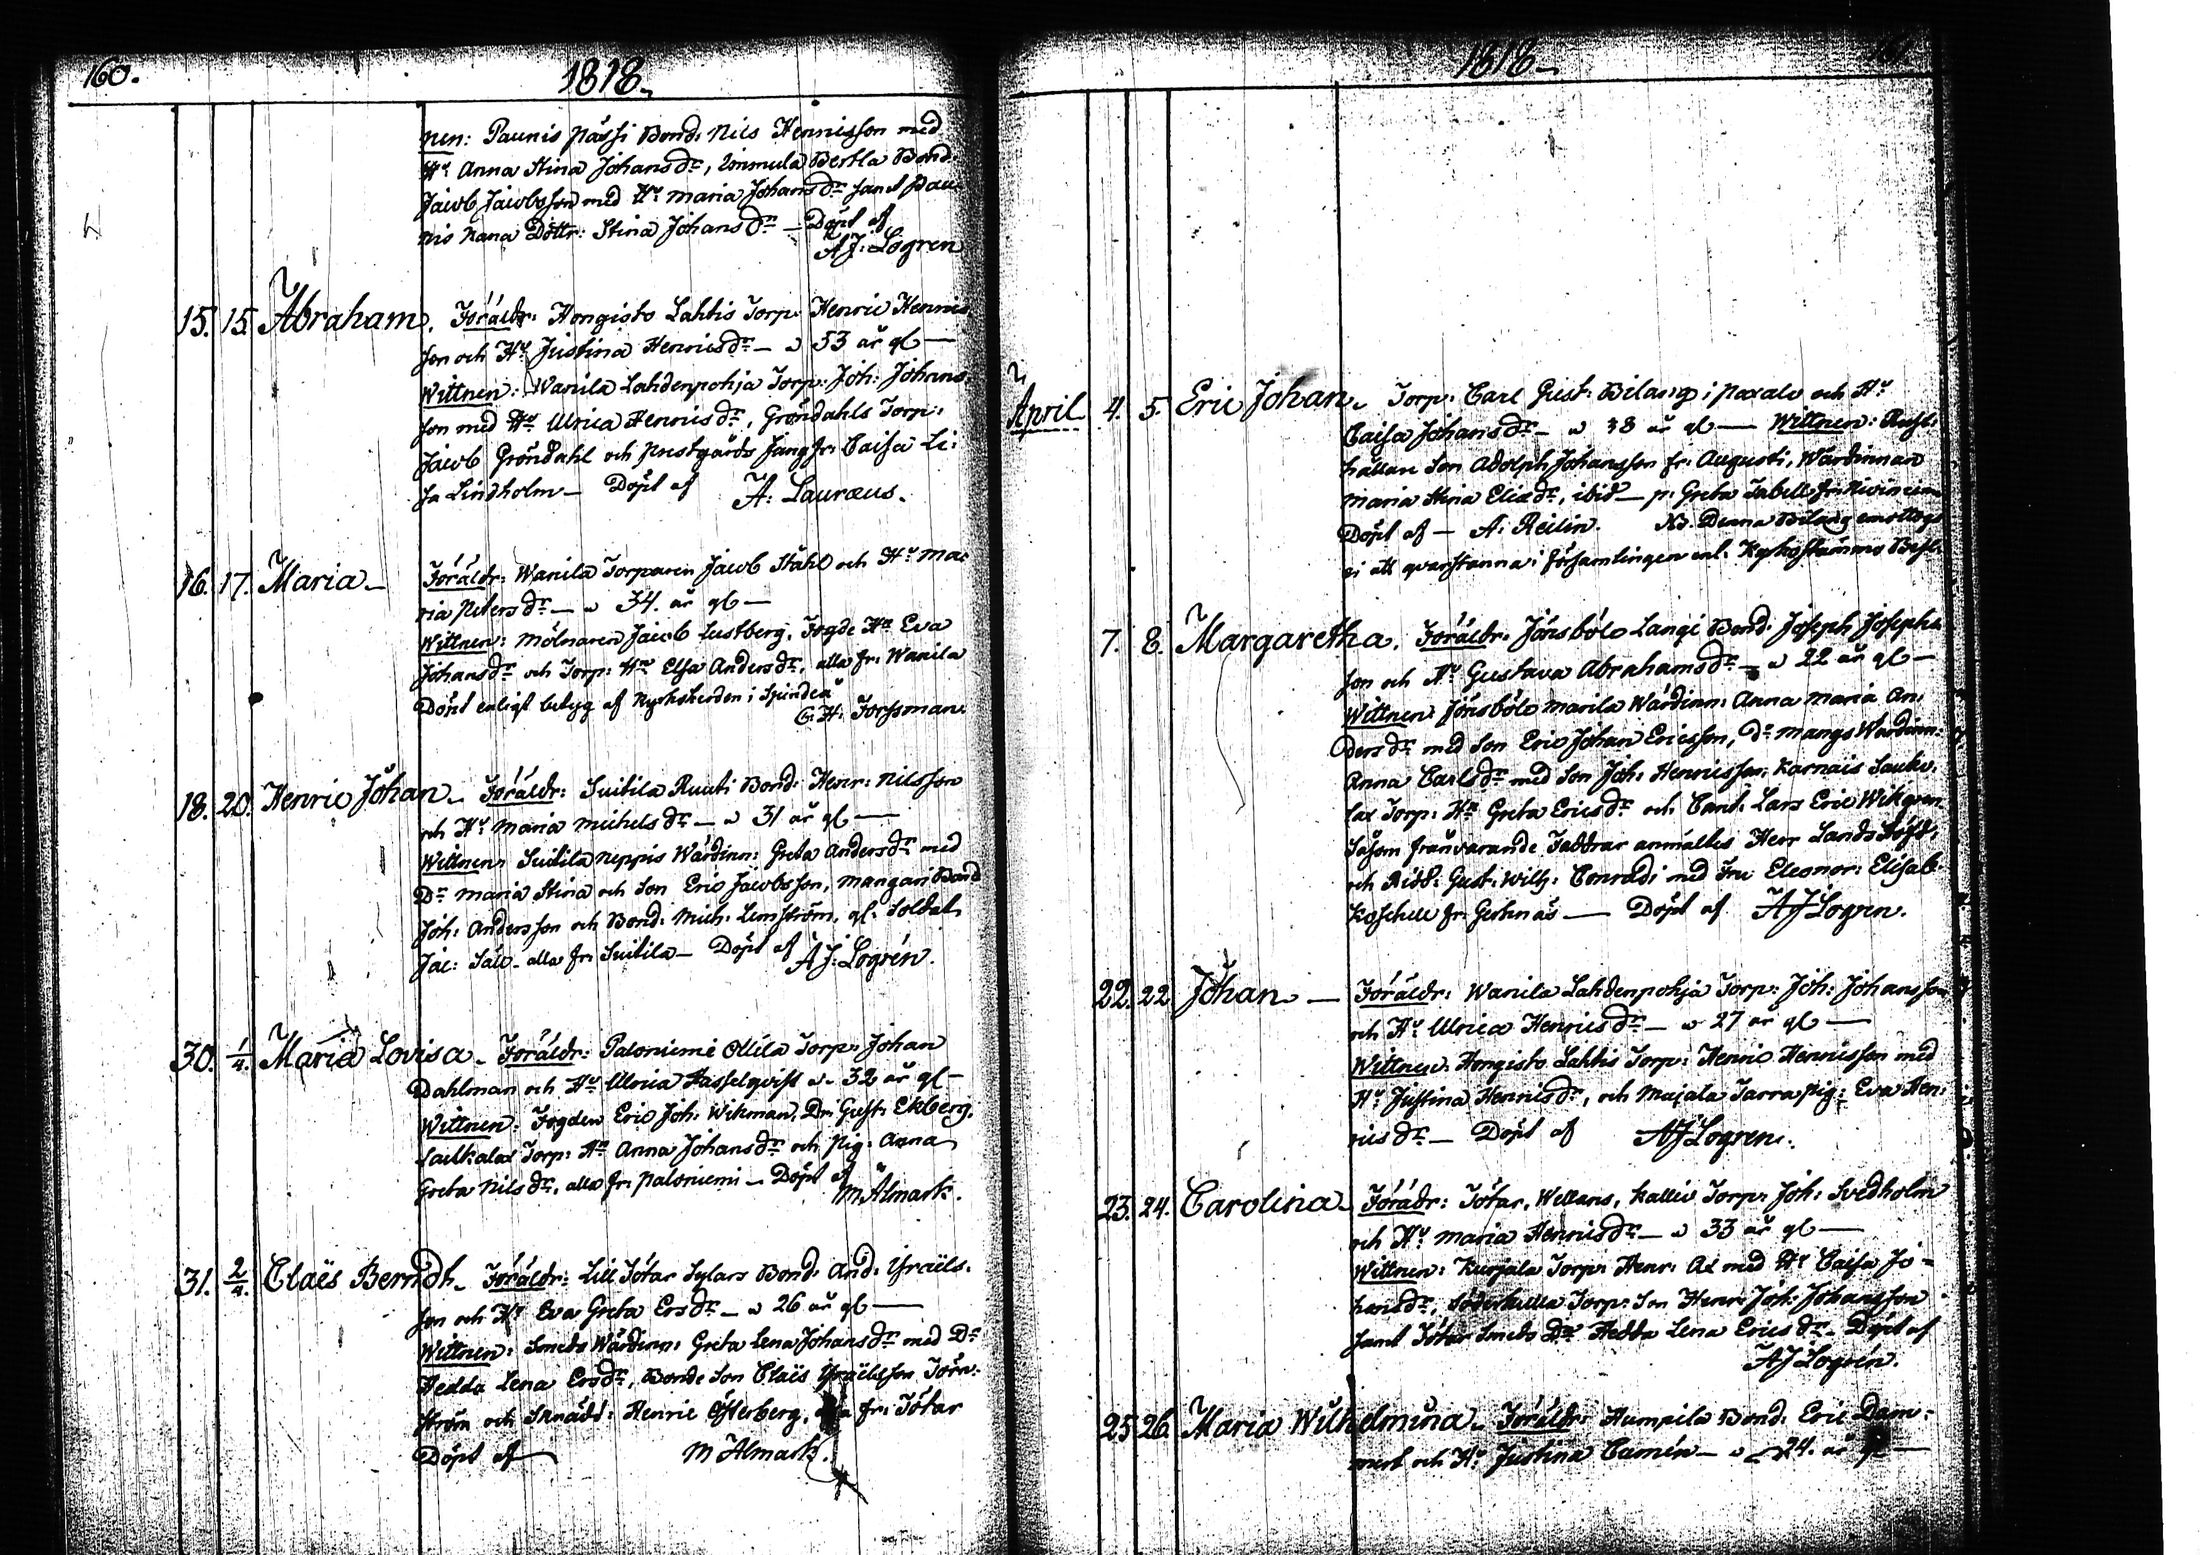 160.
1818.
nen: Paunis Nässi Bond: Nils Henricsson med
Hu Anna Stina Johansdr, Bertla Bond:
Jacob Jacobsson med Hu Maria Johansdr samt Pau-
nis Nana Dottr: Stina Johansdr — Döpt af
AJ: Logren
15. 15. Abraham. Föräldr: Hongisto Lahtis Torp: Henric Henrics
son och Hu Justina Henricsdr — 33 år gl —
Wittnen: Wanila Lahdenpohja Torp: Joh: Johans-
son med Hu Ulrica Henricsdr, Gröndahls Torp:
Jacob Gröndahl och Prestgårds Jungfr: Caisa Li-
sa Lindholm — Döpt af A: Lauræus.
16. 17. Maria — Föräldr: Wanila Torparen Jacob Ståhl och Hu Ma-
ria Petersdr — 34. år gl —
Wittnen: Mölnaren Jacob Lustberg, Fogde Hu Eva
Johansdr och Torp: Hu Elsa Andersdr, alla fr: Wanila
Döpt enligt betyg af Kyrkoherden i
G. H. Forssman.
18. 20. Henric Johan — Föräldr: Suitila Ruuti Bond: Henr: Nilsson
och Hu Maria Michelsdr — 31 år gl —
Wittnen: Suitila Neppis Wärdinn: Greta Andersdr med
Dr Maria Stina och Son Eric Jacobsson, Mangari Bond
Joh: Andersson och Bond: Mich: Lemström, gl: Soldat
Jac: alla fr: Suitila — Döpt af AJ: Logrén.
30. 1/4. Maria Lovisa — Föräldr: Paloniemi Ollila Torp: Johan
Dahlman och Hu Ulrica Hasselqvist 32 år gl —
Wittnen: Fogden Eric Joh: Wikman, Dr: Gust: Ekberg,
Torp: Hu Anna Johansdr och Pig: Anna
Greta Nilsdr, alla fr: Paloniemi — Döpt af
M Almark.
31. 2/4. Claës Berndt — Föräldr: Lill Tötar Sylars Bond: And: Israëls-
son och Hu Eva Greta Ersdr — 26 år gl —
Wittnen: Smeds Wärdinn: Greta Lena Johansdr med Dr
Hedda Lena Ersdr, Bonde Son Claës Israëlsson Törn-
ström och Skrädd: Henric Österberg, alla fr: Tötar
Döpt af M Almark.
1818 —
161
April 4. 5. Eric Johan — Torp: Carl Gust: Bilang i och Hu
Caisa Johansdr — 38 år gl — Wittnen: Rust-
hållare Son Adolph Johansson fr: Augusti, Wärdinnan
Maria Stina Elixdr, ibid — p: Greta Tabell fr:
Döpt af — A: Reilin. NB. Denna Bilang emottogs
ei att qvarstanna i församlingen enl: Kyrkostämmo Besl:
7. 8. Margaretha. Föräldr: Jönsböle Langi Bond: Joseph Josephs-
son och Hu Gustava Abrahamsdr — 22 år gl —
Wittnen: Jönsböle Marila Wärdinn: Anna Maria An-
dersdr med Son Eric Johan Ericsson, Dr Mangs Wärdinn:
Anna Carlsdr med Son Joh: Henricsson, Karnais Sauko-
lax Torp: Hu Greta Ericsdr och Cant: Lars Eric Wikgren
Såsom frånvarande Faddrar anmältes Herr Lands Höfd:
och Ridd: Gust: Wilh: Conradi med Fru Eleonor: Elisab:
Koschell fr: Gerknäs — Döpt af AJ Logren.
22. 22. Johan — Föräldr: Wanila Lahdenpohja Torp: Joh: Johansson
och Hu Ulrica Henricsdr — 27 år gl —
Wittnen: Hongisto Lahtis Torp: Henric Henricsson med
Hu Justina Henricsdr, och Maijala Jarra Pig: Eva Hen-
ricsdr — Döpt af AJ Logren.
23. 24. Carolina — Föräldr: Tötar, Wellars, Kallio Torp: Joh: Svedholm
och Hu Maria Henricsdr — 33 år gl —
Wittnen: Kurjala Torp: Henr: Ax med Hu Caisa Jo-
hansdr, Söderkulla Torp: Son Henr: Joh: Johansson
samt Tötar Smeds Dr Hedda Lena Ericsdr — Döpt af
AJ Logrén.
25 26. Maria Wilhelmina — Föräldr: Humpila Bond: Eric Dam-
mert och Hu Justina Camén — 24. år gl —